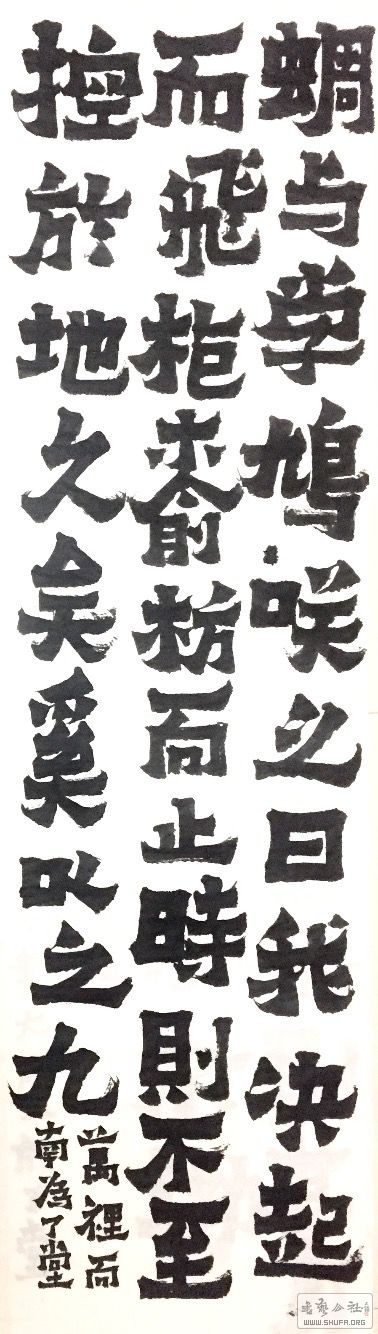 蜩与学鳩咲之曰我决起
而飛柜榆枋而止時則不至
控於地久矣奚以之九
萬裡而
南為了堂
书艺公社
WWW.SHUFA.ORG